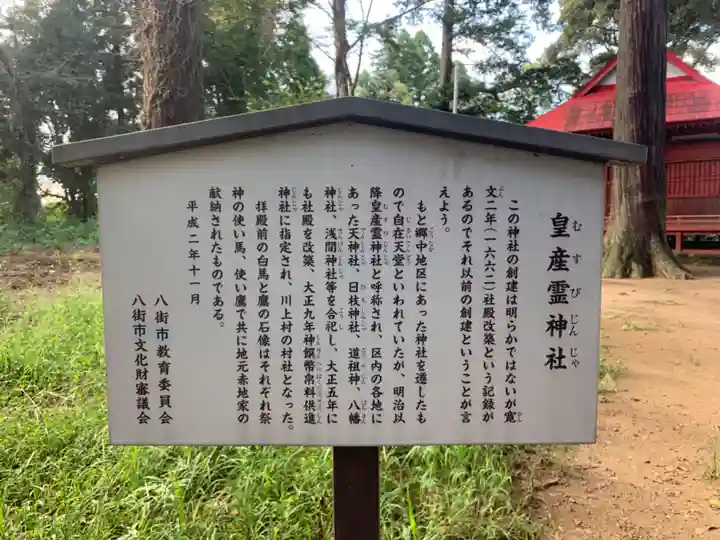 皇産霊神社
むすびじんじゃ
この神社の創建は明らかではないが寛
文二年(一六六二)社殿改築という記録が
あるのでそれ以前の創建ということが言
えよう。
もと郷中地区にあった神社を遷したも
ので自在天堂といわれていたが、明治以
降皇産霊神社と呼称され、区内の各地に
あった天神社、日枝神社、道祖神、八幡
神社、浅間神社等を合祀し、大正五年に
も社殿を改築、大正九年神饌幣帛料供進
神社に指定され、川上村の村社となった。
拝殿前の白馬と鷹の石像はそれぞれ祭
神の使い馬、使い鷹で共に地元赤地家の
献納されたものである。
平成二年十一月
八街市教育委員会
八街市文化財審議会